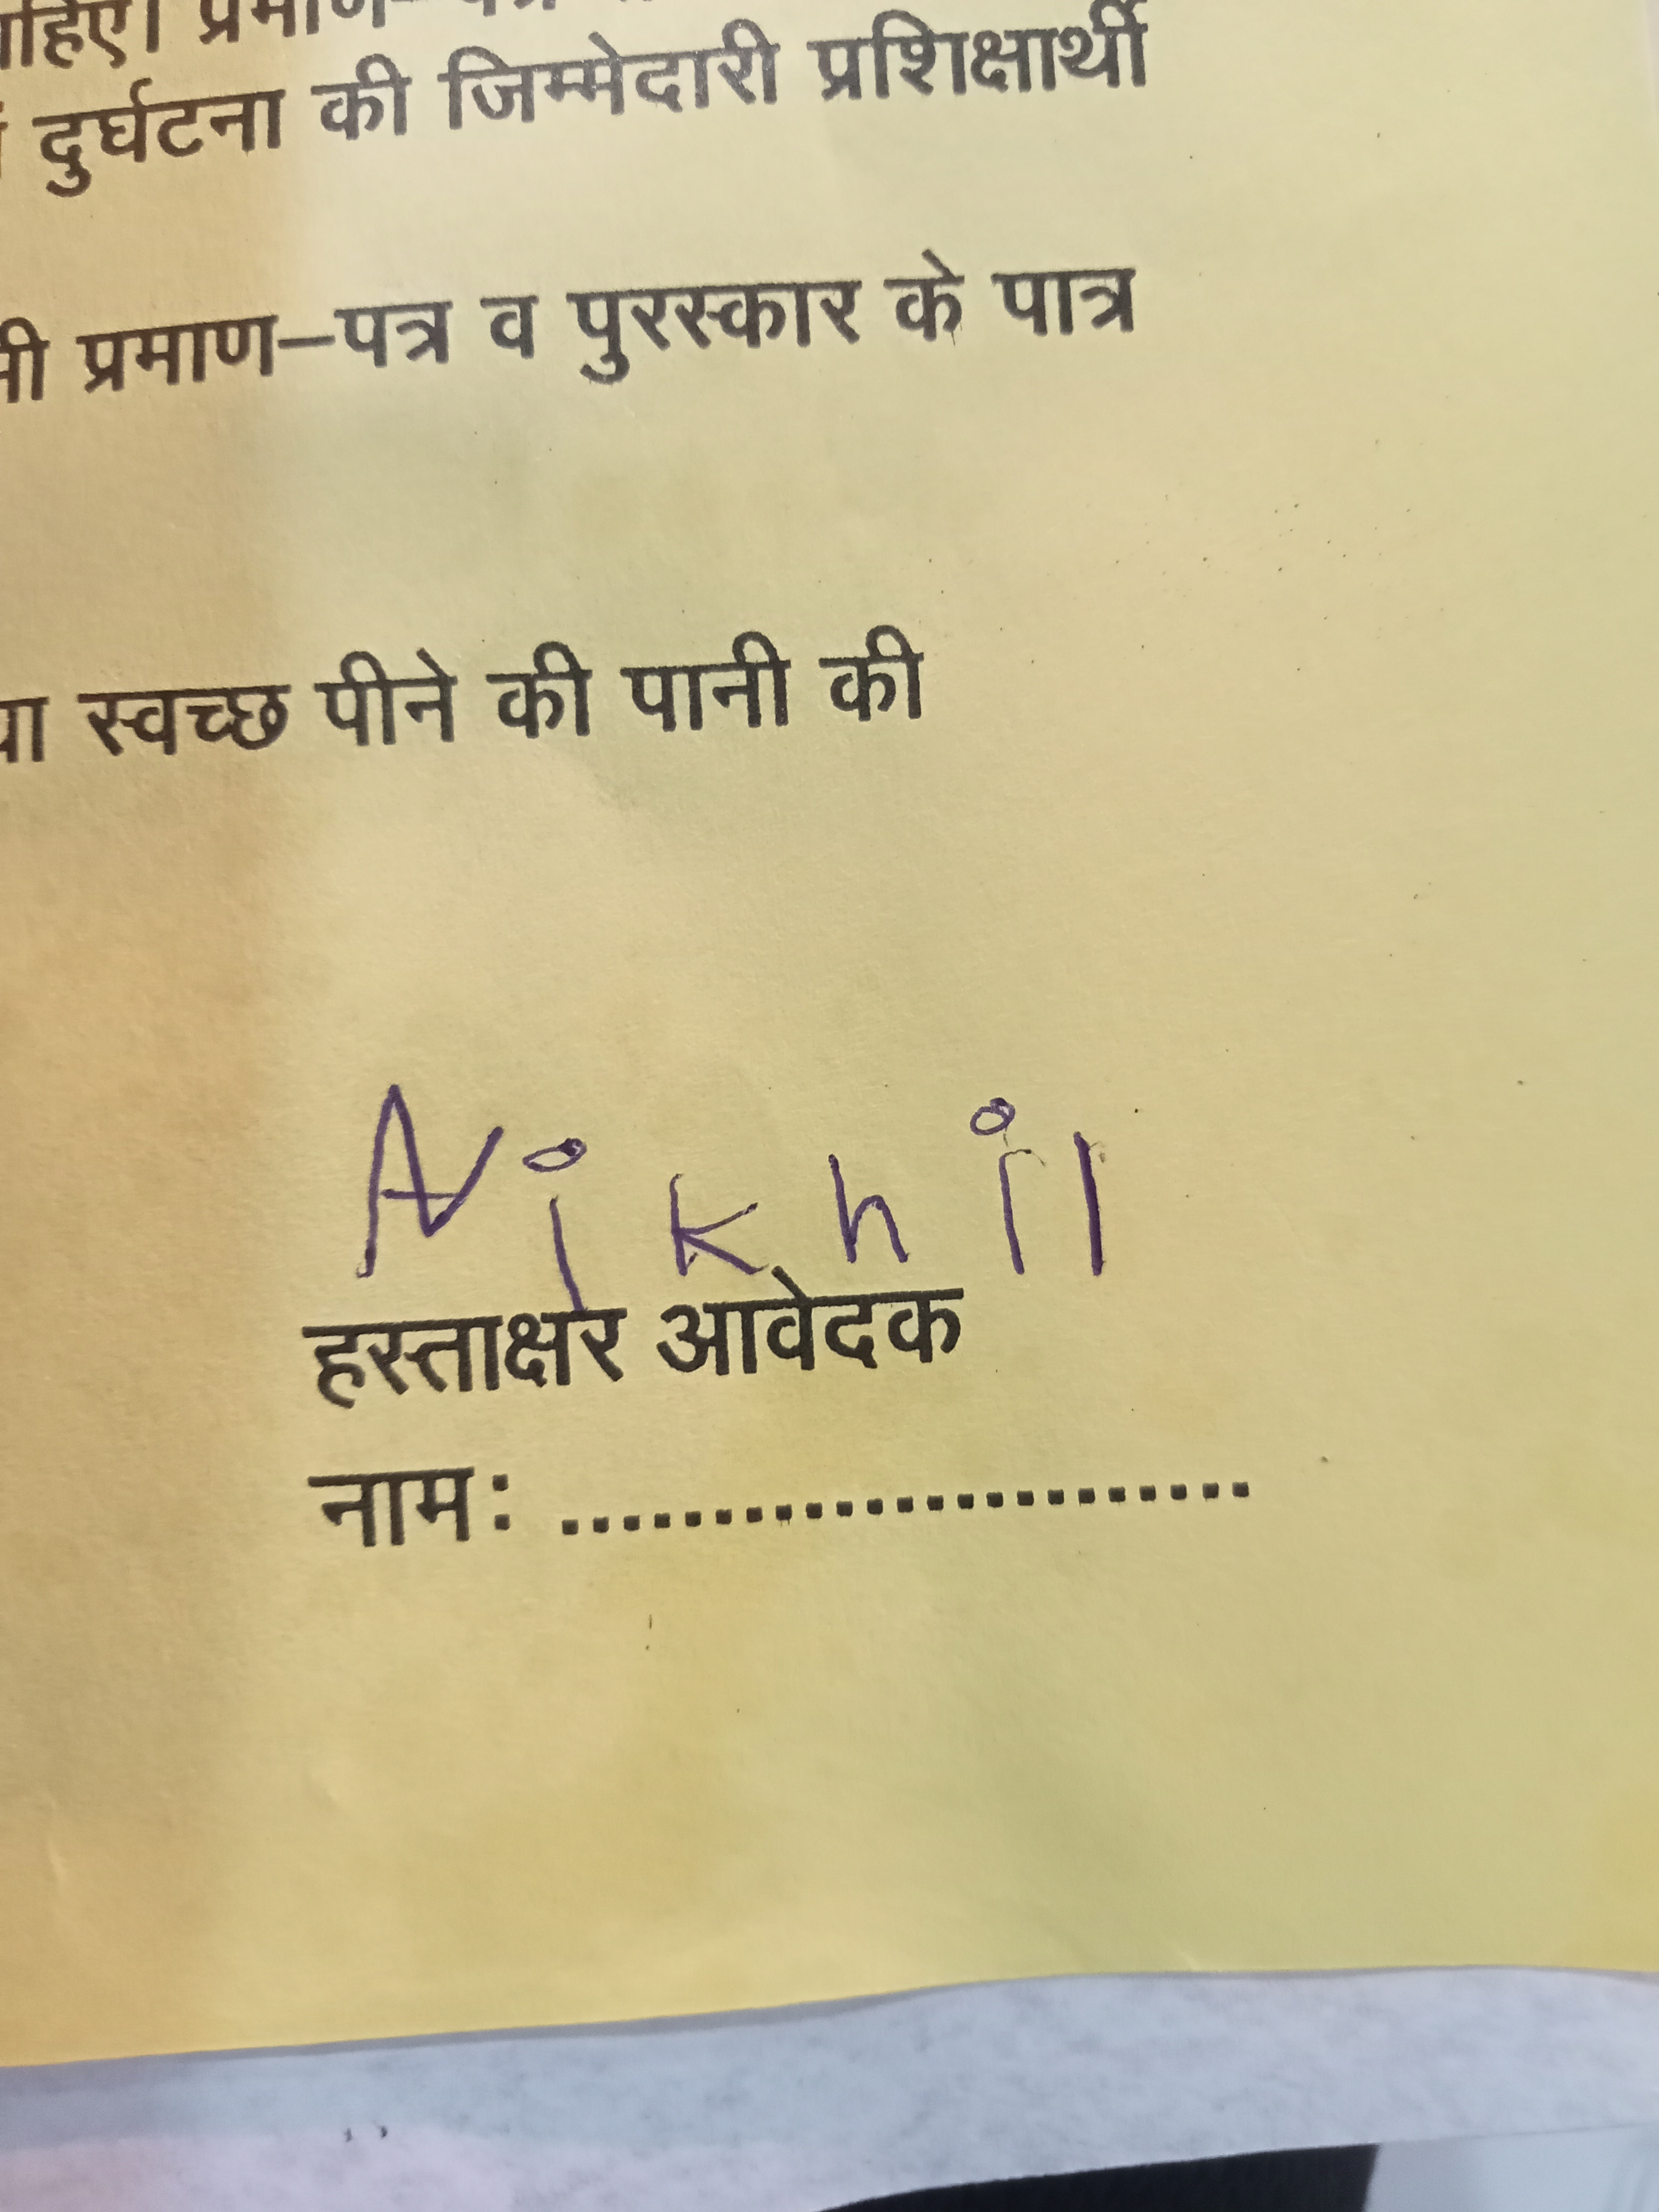 दुर्घटना की जिम्मेदारी प्रशिक्षार्थी
प्रमाण–पत्र व पुरस्कार के पात्र
स्वच्छ पीने की पानी की
Nikhil
हस्ताक्षर आवेदक
नामः ........................